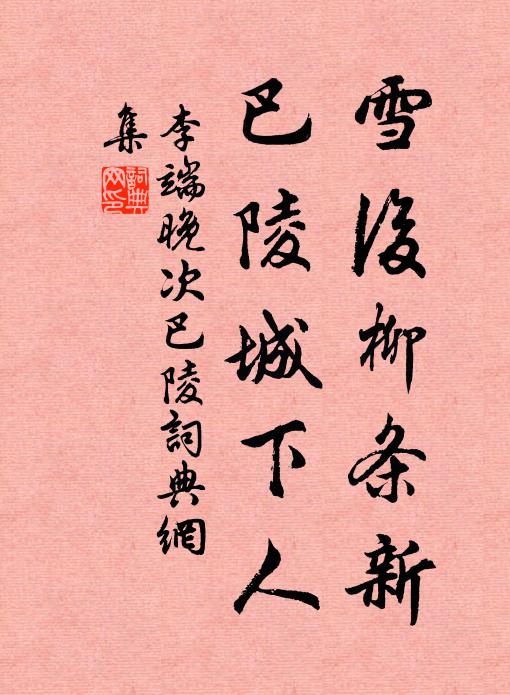 雪後柳条新
巴陵城下人
李端晚次巴陵詞典網
集
詞典网印